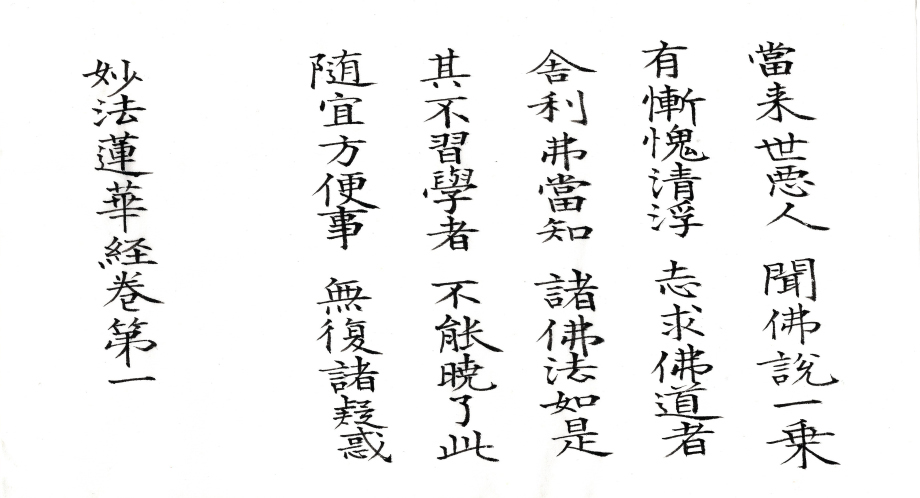 當来世悪人 聞佛說一乗
有慚愧清浮 志求佛道者
舎利弗當知 諸佛法如是
其不習學者 不能暁了此
随宜方便事 無復諸疑惑
妙法蓮華経巻第一